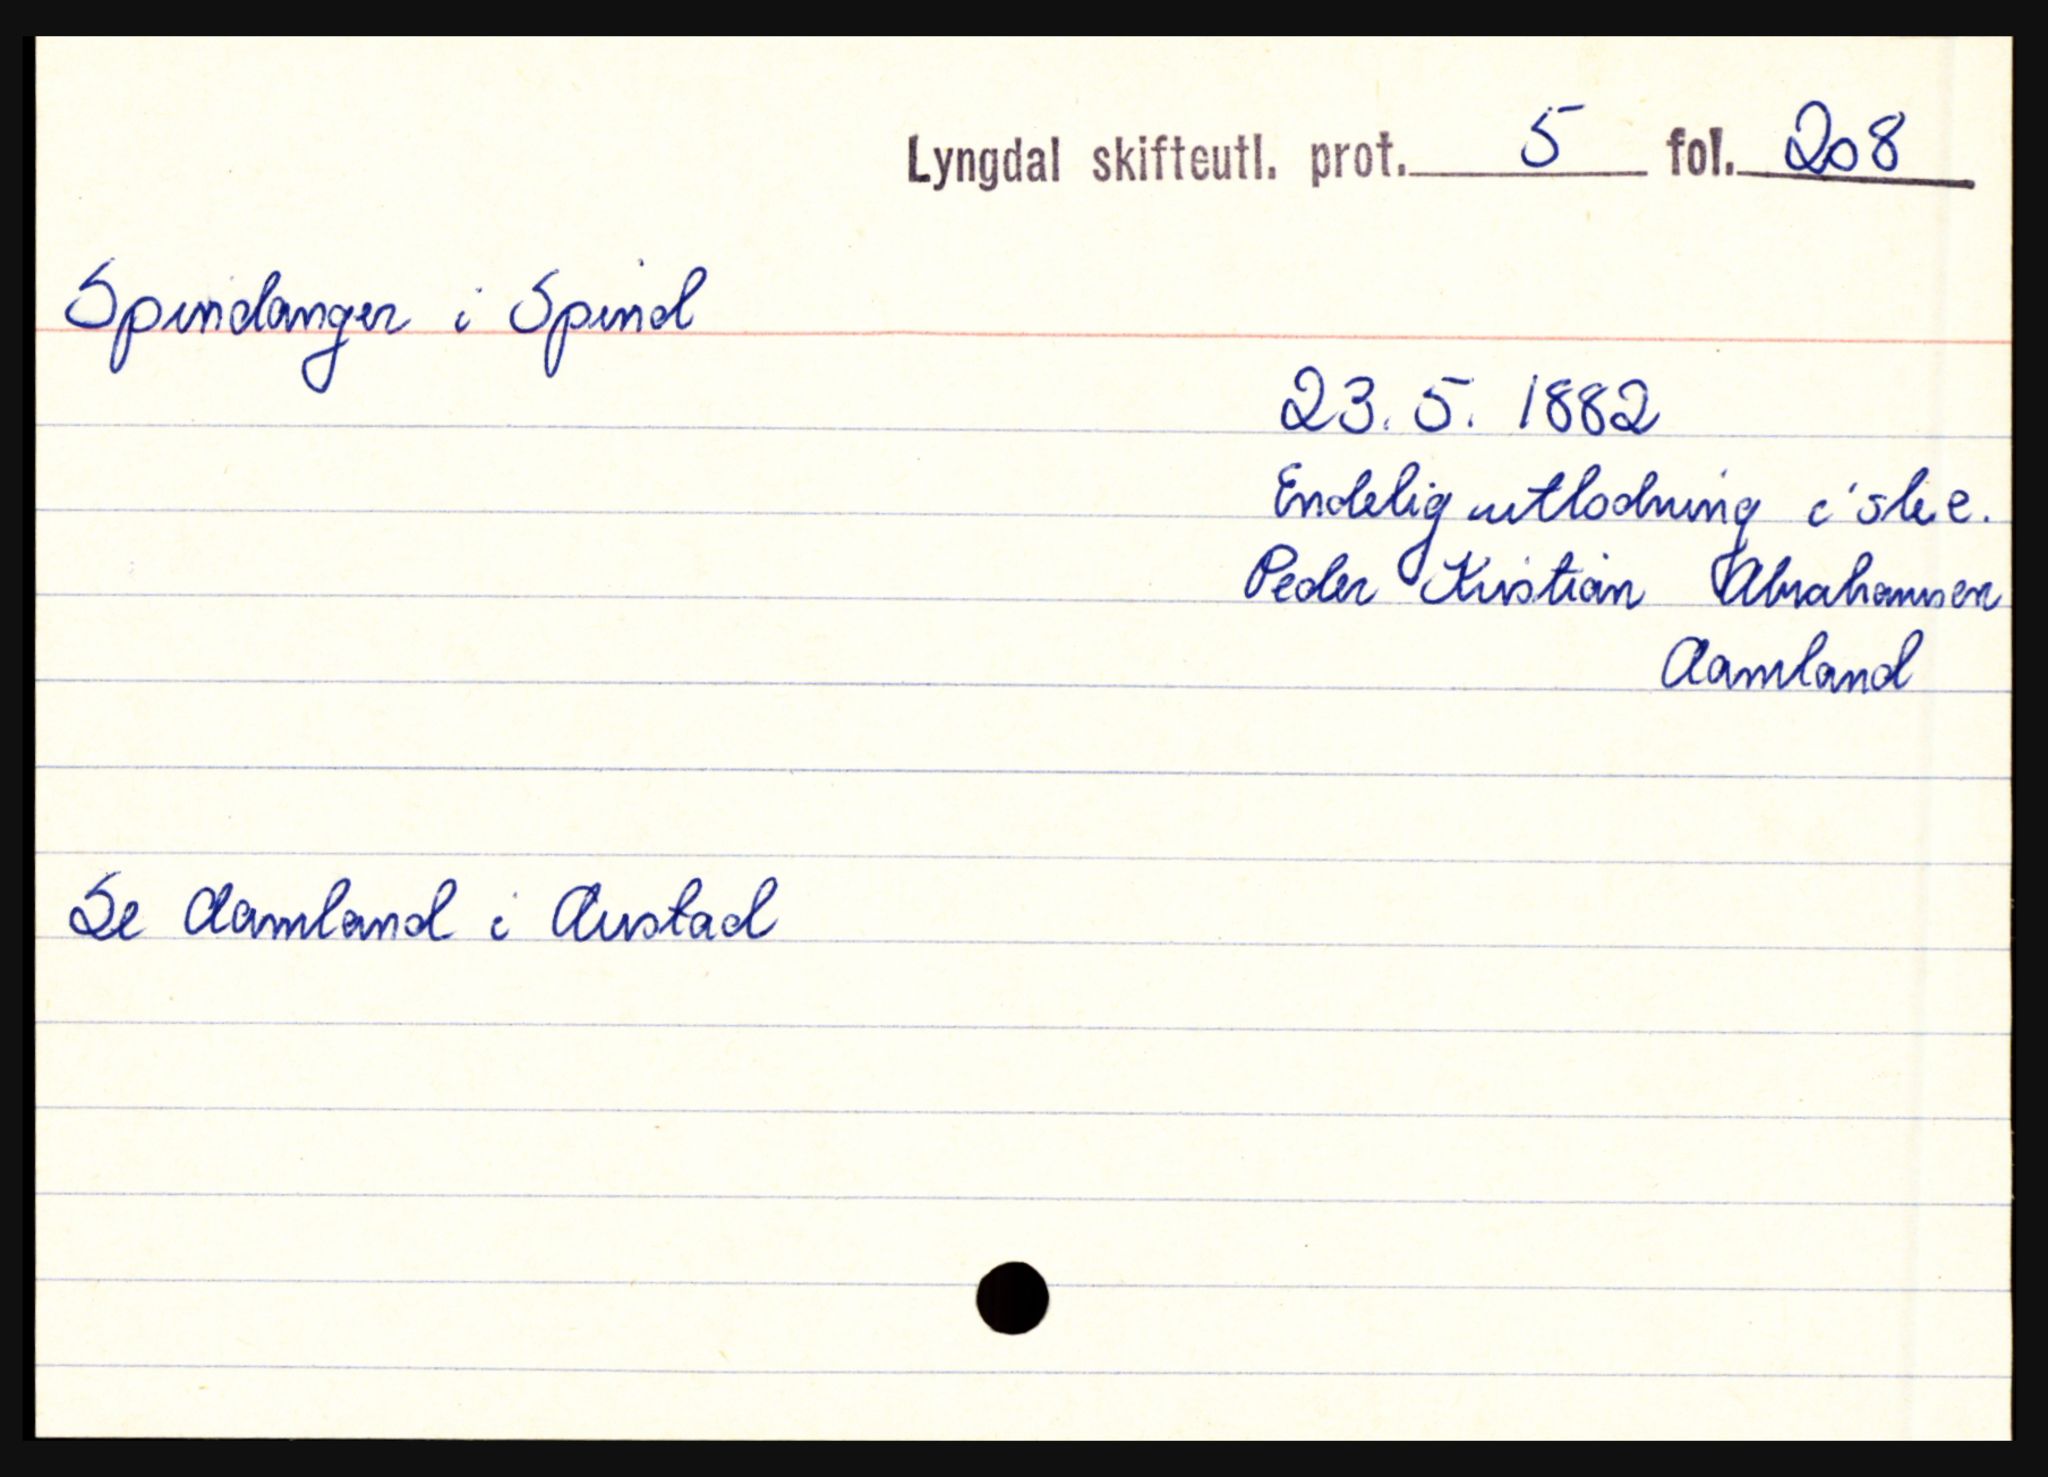 Lyngdal skifteutl. prot. 5 fol. 208
Spindanger i Spind
23. 5. 1882
Endelig utlodning i sk. e.
Peder Kristian Abrahamsen
Aamland
Se Aamland i Austad